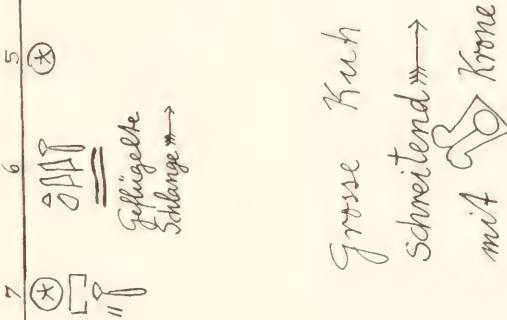 7 6 5
Geflügelte
Schlange
Grosse Kuh
Schreitend
mit Krone